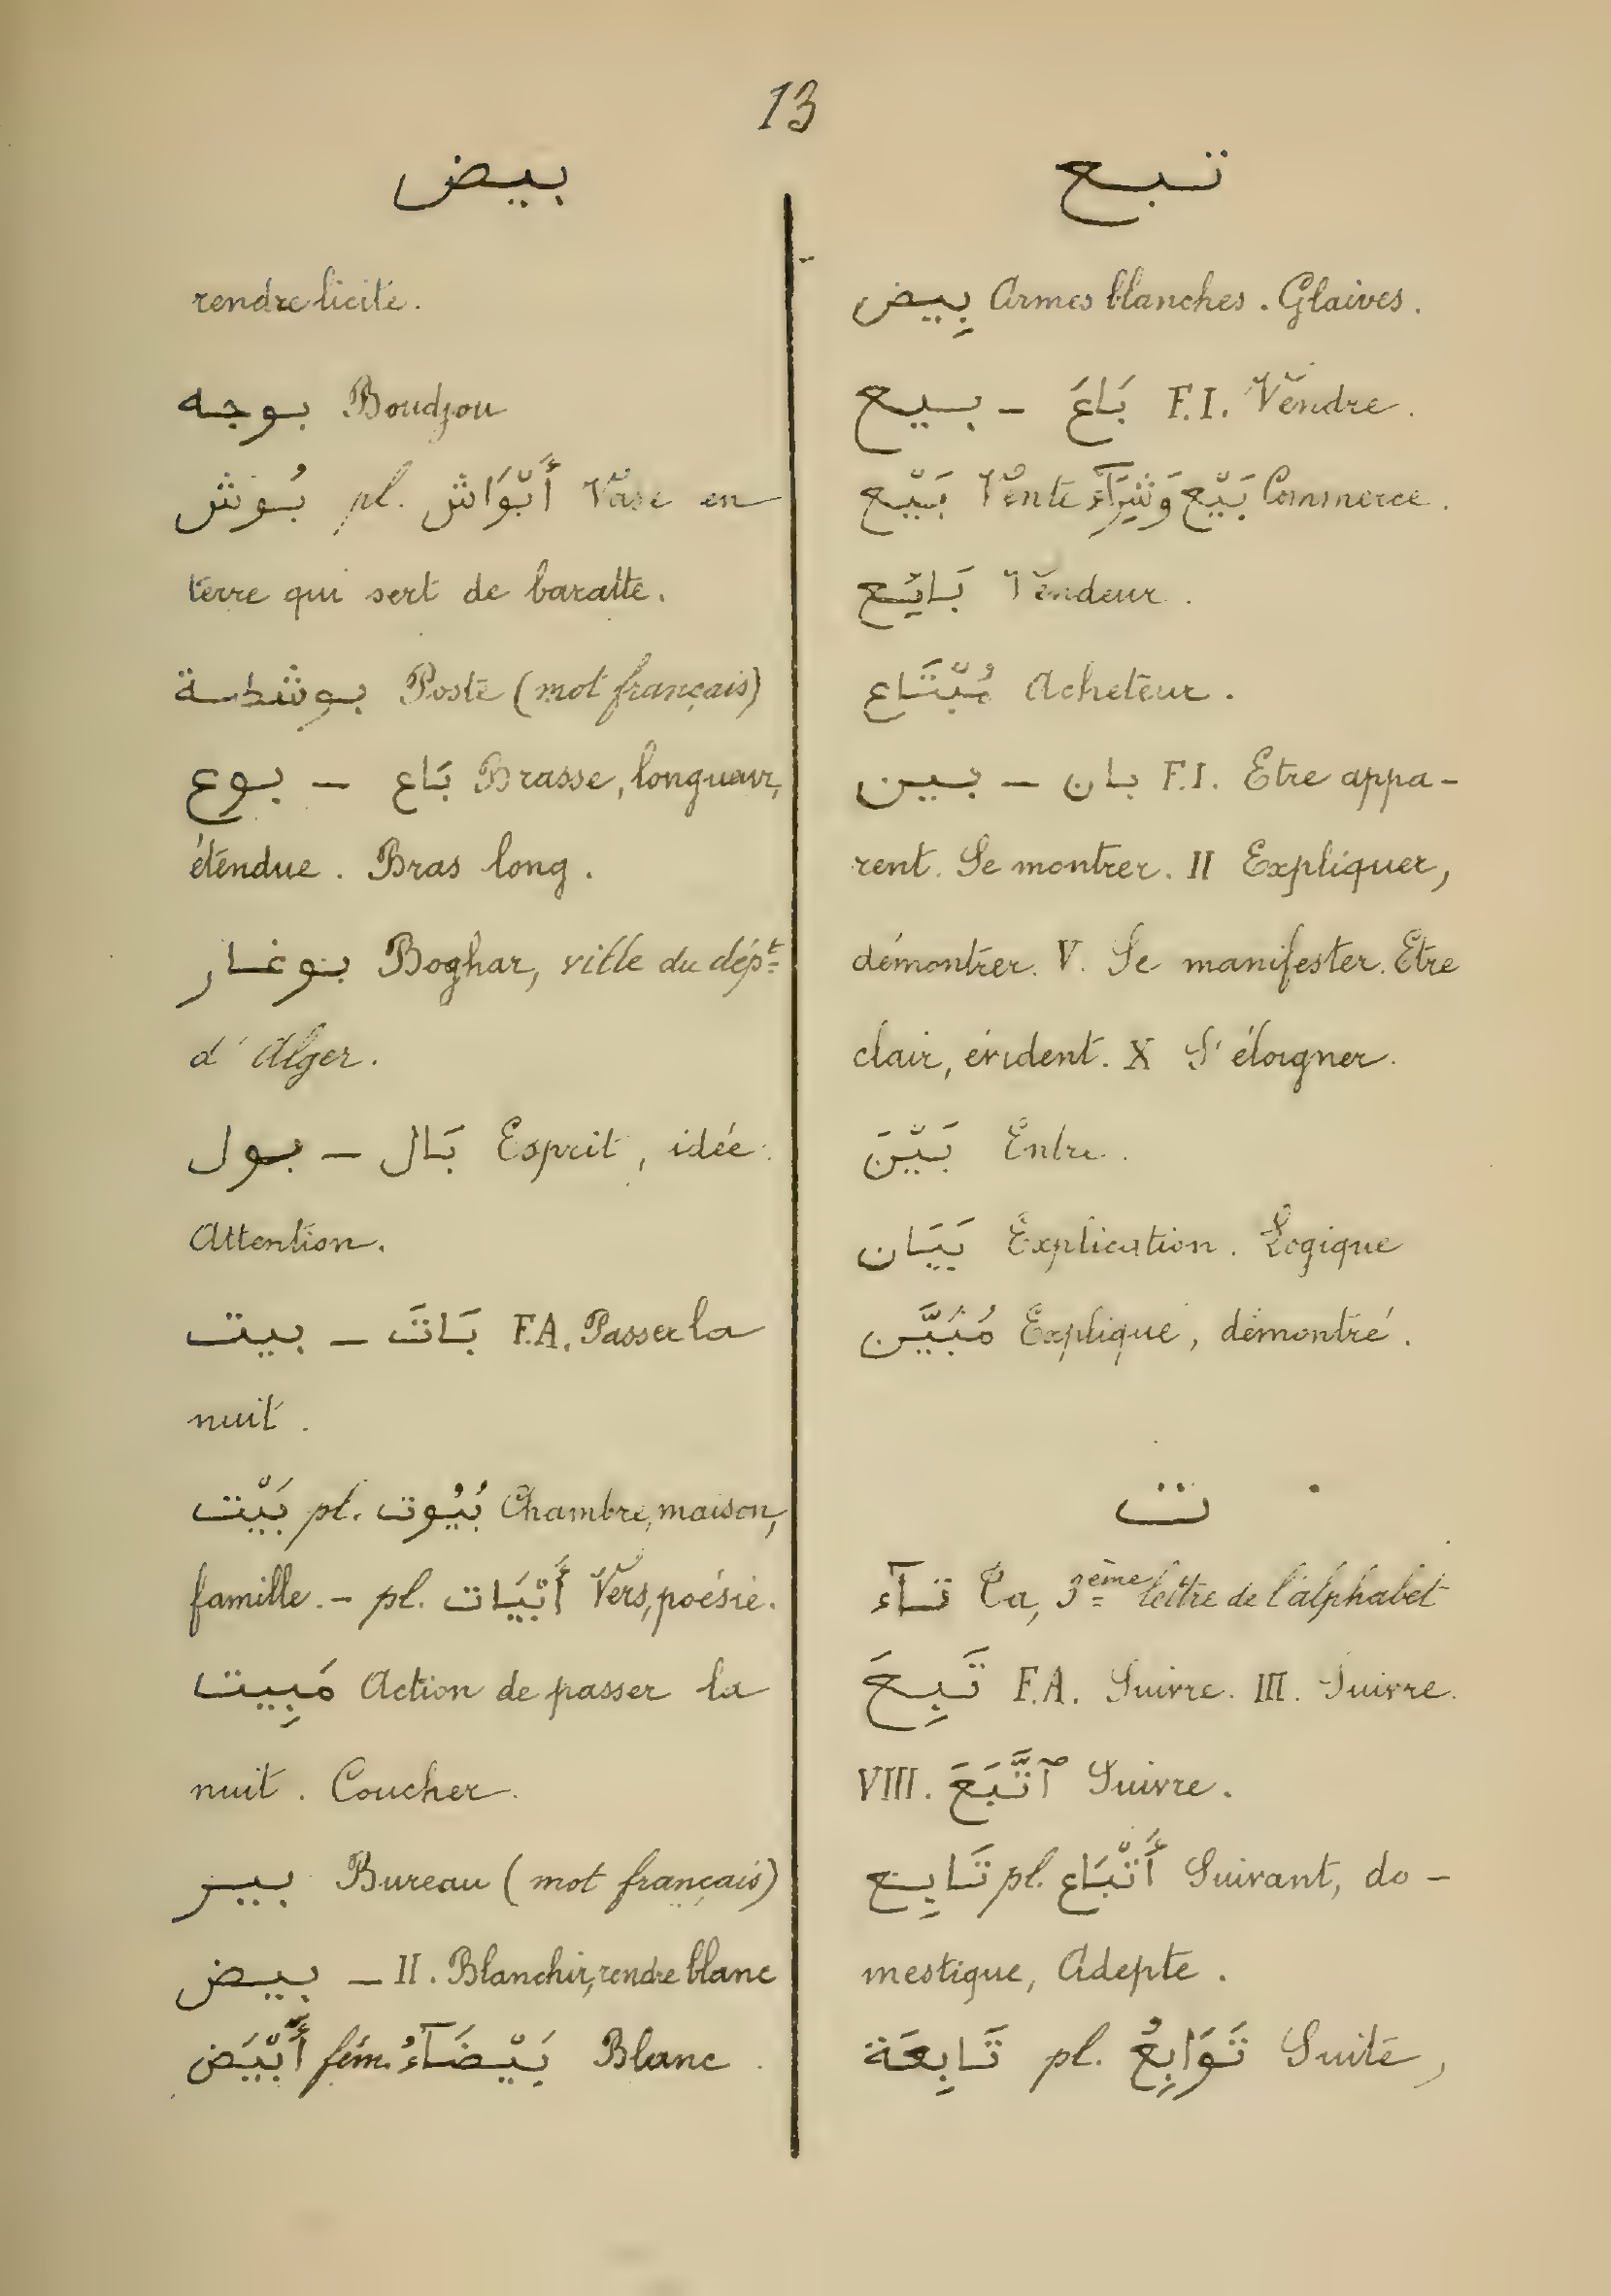 13
بيض
rendre licite.
بوجه Boudjou
بُوش pl. أَبْوَاش Vase en
terre qui sert de baratte.
بوشطة Poste (mot français)
بوع — بَاع Brasse, longueur,
étendue. Bras long.
بوغار Boghar, ville du dépt
d'Alger.
بول — بَال Esprit, idée.
Attention.
بيت — بَاتَ F.A. Passer la
nuit.
بَيْت pl. بُيُوت Chambre, maison,
famille. — pl. أَبْيَات Vers, poésie.
مَبِيت Action de passer la
nuit. Coucher.
بير Bureau (mot français)
بيض — II. Blanchir, rendre blanc
أَبْيَض fém. بَيْضَآءُ Blanc.
تبع
بِيض Armes blanches. Glaives.
بيع — بَاعَ F.I. Vendre.
بَيْع Vente بَيْع وَشِرَآء Commerce.
بَائِع Vendeur.
مُبْتَاع Acheteur.
بين — بان F.I. Etre appa-
rent. Se montrer. II Expliquer,
démontrer. V. Se manifester. Etre
clair, évident. X S'éloigner.
بَيْنَ Entre.
بَيَان Explication. Logique
مُبَيَّن Expliqué, démontré.
ت
تآء Ta, 3ème lettre de l'alphabet
تَبِعَ F.A. Suivre. III. Suivre.
VIII. ٱتَّبَعَ Suivre.
تَابِع pl. أَتْبَاع Suivant, do-
mestique, Adepte.
تَابِعَة pl. تَوَابِعُ Suite,